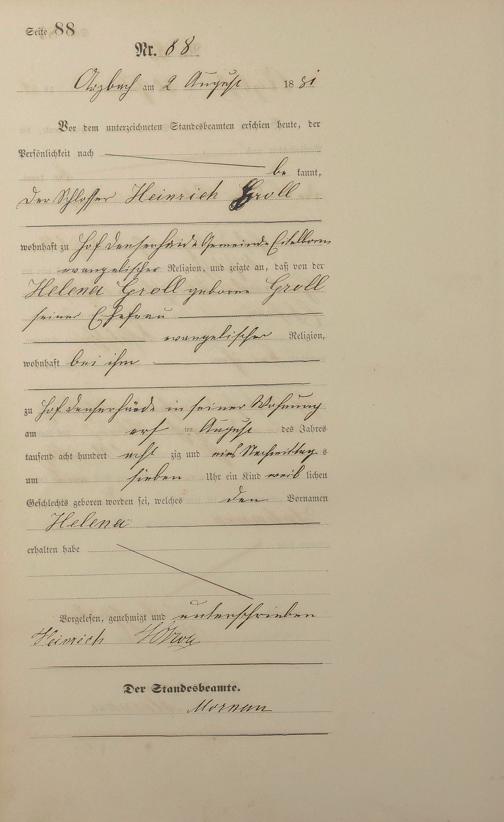 Seite 88
Nr. 88
Arzbach am 2 August 1881
Vor dem unterzeichneten Standesbeamten erschien heute, der
Persönlichkeit nach
be kannt,
Der Schlosser Heinrich Groll
wohnhaft zu Hof Denserhaide Gemeinde Eitelborn
evangelischer Religion, und zeigte an, daß von der
Helena Groll geborne Groll
seiner Ehefrau
evangelischer Religion,
wohnhaft bei ihm
zu Hof Denserhaide in seiner Wohnung
am ersten August des Jahres
tausend acht hundert acht zig und eins Nachmittags
um sieben Uhr ein Kind weib lichen
Geschlechts geboren worden sei, welches den Vornamen
Helena
erhalten habe
Vorgelesen, genehmigt und unterschrieben
Heinrich Groll
Der Standesbeamte.